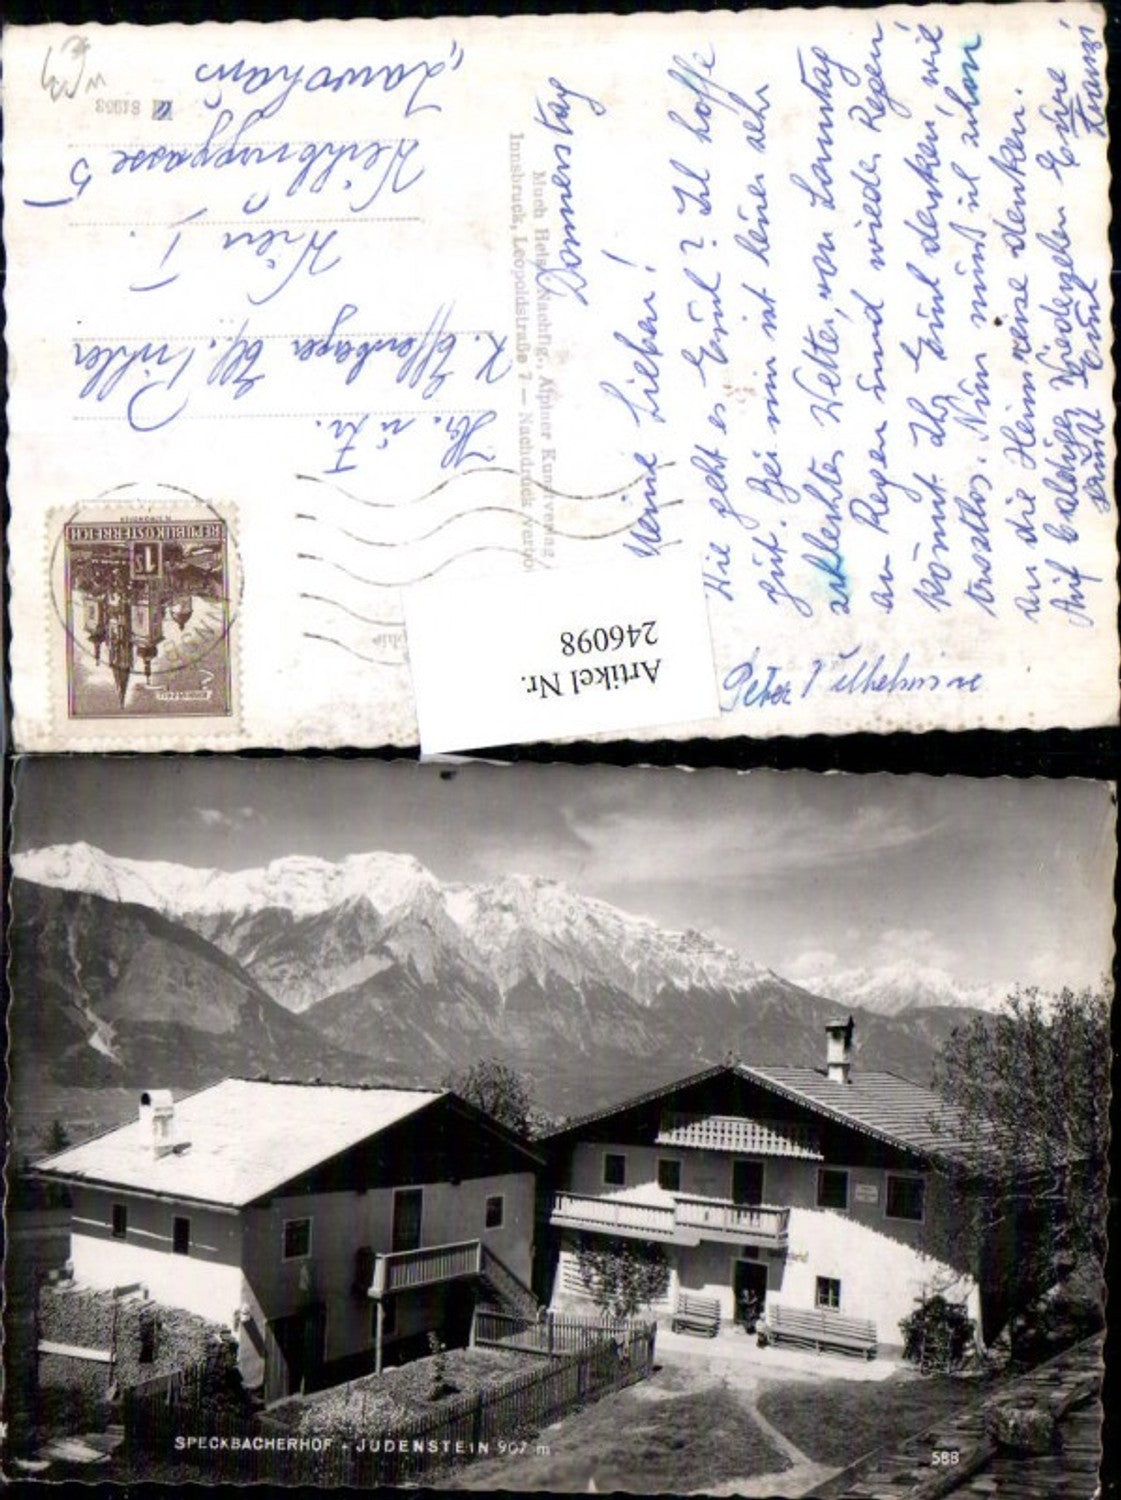 Donnerstag
Meine Lieben!
Wie geht es Euch? Ich hoffe
gut. Bei mir ist keiner sehr
schlechtes Wetter, von Samstag
an Regen und wieder Regen
könnt Ihr Euch denken, wie
trostlos. Nun muß ich schon
an die Heimreise denken.
Auf baldiges Wiedersehen Eure
grüßt Euch Franzi
Peter Wilhelmine
Much Heiss Nachflg., Alpiner Kunstverlag
Innsbruck, Leopoldstraße 7 — Nachdruck verbo
Hr. u. Fr.
K. Effenberger
Wien
5
81953
REPUBLIK ÖSTERREICH
1 S
Artikel Nr.
246098
SPECKBACHERHOF - JUDENSTEIN 907 m
588